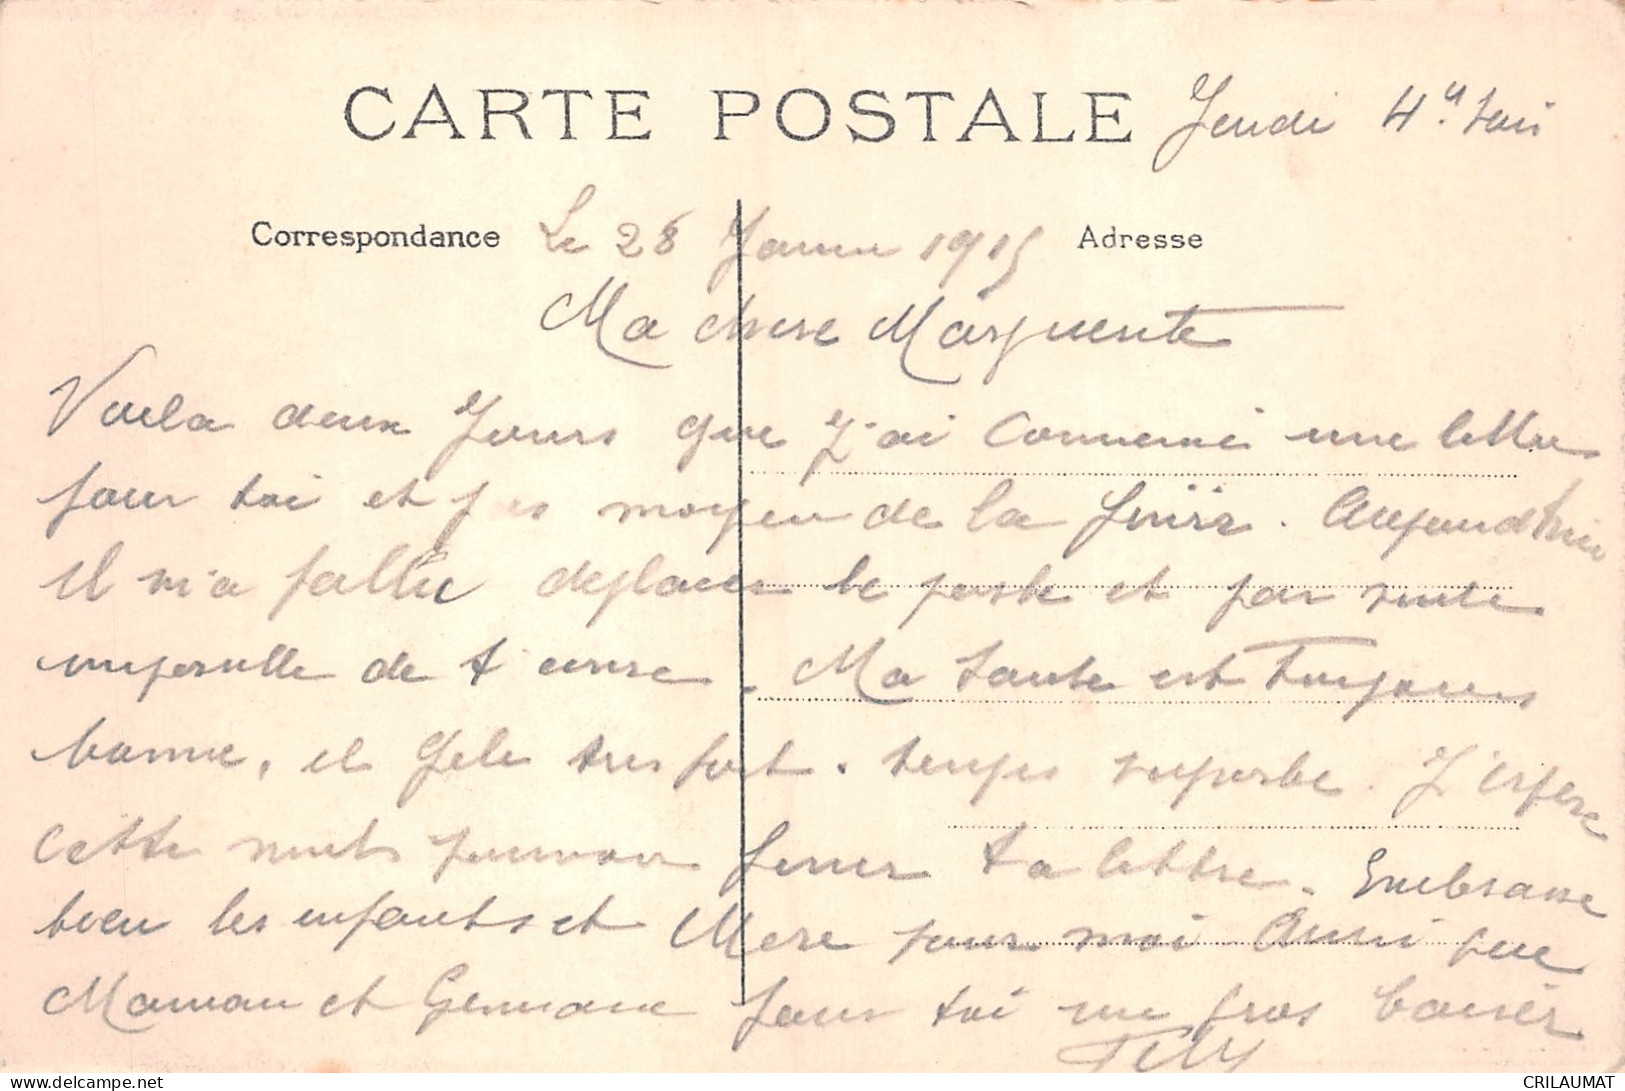 CARTE POSTALE Jeudi 4h. soir
Correspondance Le 28 Janvier 1915 Adresse
Ma chere Marguerite
Voila deux Jours que J'ai commencé une lettre
pour toi et pas moyen de la finir. Aujourd'hui
il m'a fallu deplacer le poste et par suite
impossible de t'ecrire. Ma Santé est Toujours
bonne, il gele tres fort. temps superbe. J'espere
cette nuit pouvoir finir ta lettre. Embrasse
bien les enfants et Mere pour moi Ainsi que
Maman et Germaine pour toi un gros baiser
delcampe.net
CRILAUMAT